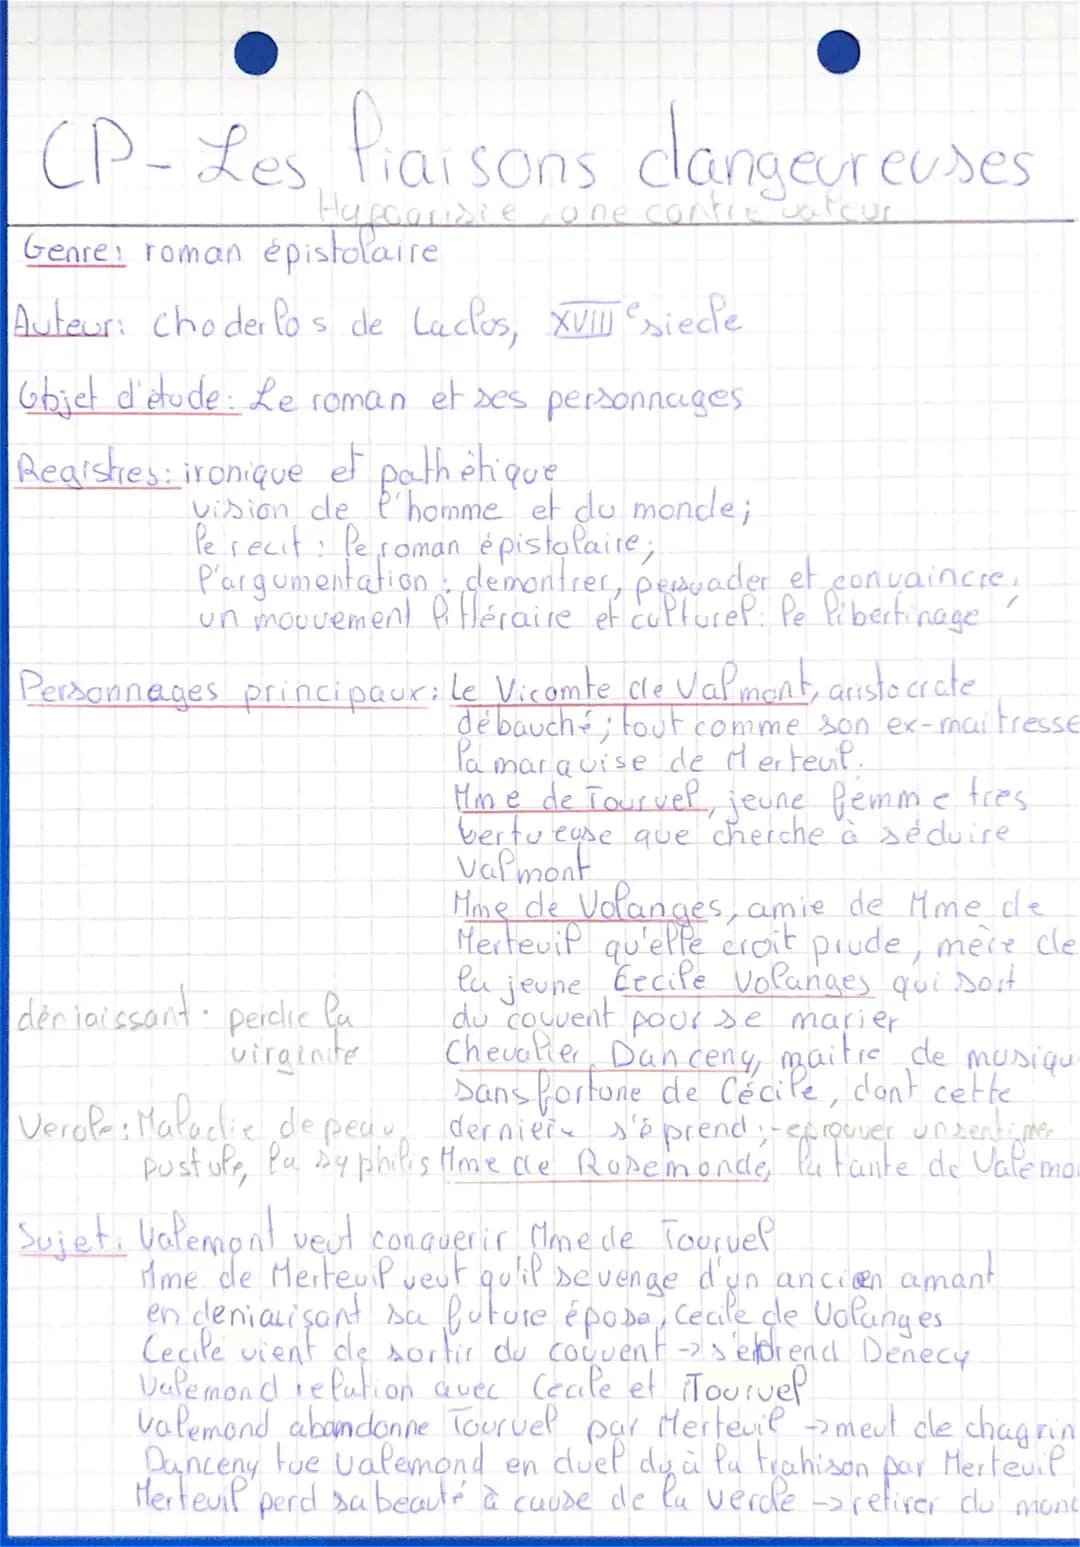 CP - Les liaisons dangeureuses
Hypocrisie, une contre valeur
Genre: roman épistolaire
Auteur: Choderlos de Laclos, XVIIIe siecle
Objet d'étude: Le roman et ses personnages
Registres: ironique et pathétique
vision de l'homme et du monde;
le recit: le roman épistolaire;
l'argumentation: demontrer, persuader et convaincre,
un mouvement littéraire et culturel: le libertinage
Personnages principaux: Le Vicomte de Valmont, aristocrate
débauché; tout comme son ex-maitresse
la marquise de Merteuil.
Mme de Tourvel, jeune femme tres
vertueuse que cherche à séduire
Valmont
Mme de Volanges, amie de Mme de
Merteuil qu'elle croit prude, mère de
la jeune Cecile Volanges qui sort
déniaissant: perdre la du couvent pour se marier
virginité Chevalier Danceny, maitre de musiqu
sans fortune de Cécile, dont cette
Verole: Maladie de peau, derniere s'éprend; - eprouver un sentimer
pustule, la syphilis Mme de Rosemonde, la tante de Valemo
Sujet: Valemont veut conquerir Mme de Tourvel
Mme de Merteuil veut qu'il se venge d'un ancien amant
en deniaisant sa future épose, Cecile de Volanges
Cecile vient de sortir du couvent -> s'eprend Denecy
Valemond relation avec Cecile et Tourvel
Valemond abandonne Tourvel par Merteuil -> meut de chagrin
Danceny tue Valemond en duel du à la trahison par Merteuil
Merteuil perd sa beauté à cause de la verole -> retirer du mond